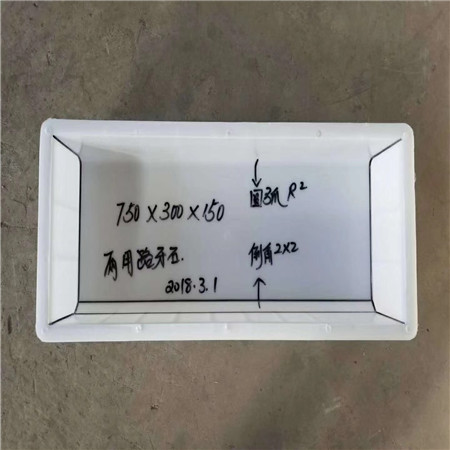 750×300×150
两用路牙石.
2018.3.1
圆弧R2
倒角2×2